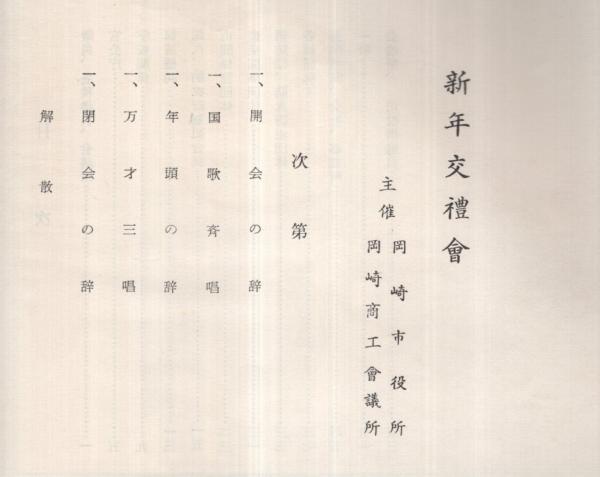 新年交禮會
主催 岡崎市役所
岡崎商工會議所
次第
一、開会の辞
一、国歌斉唱
一、年頭の辞
一、万才三唱
一、閉会の辞
解散